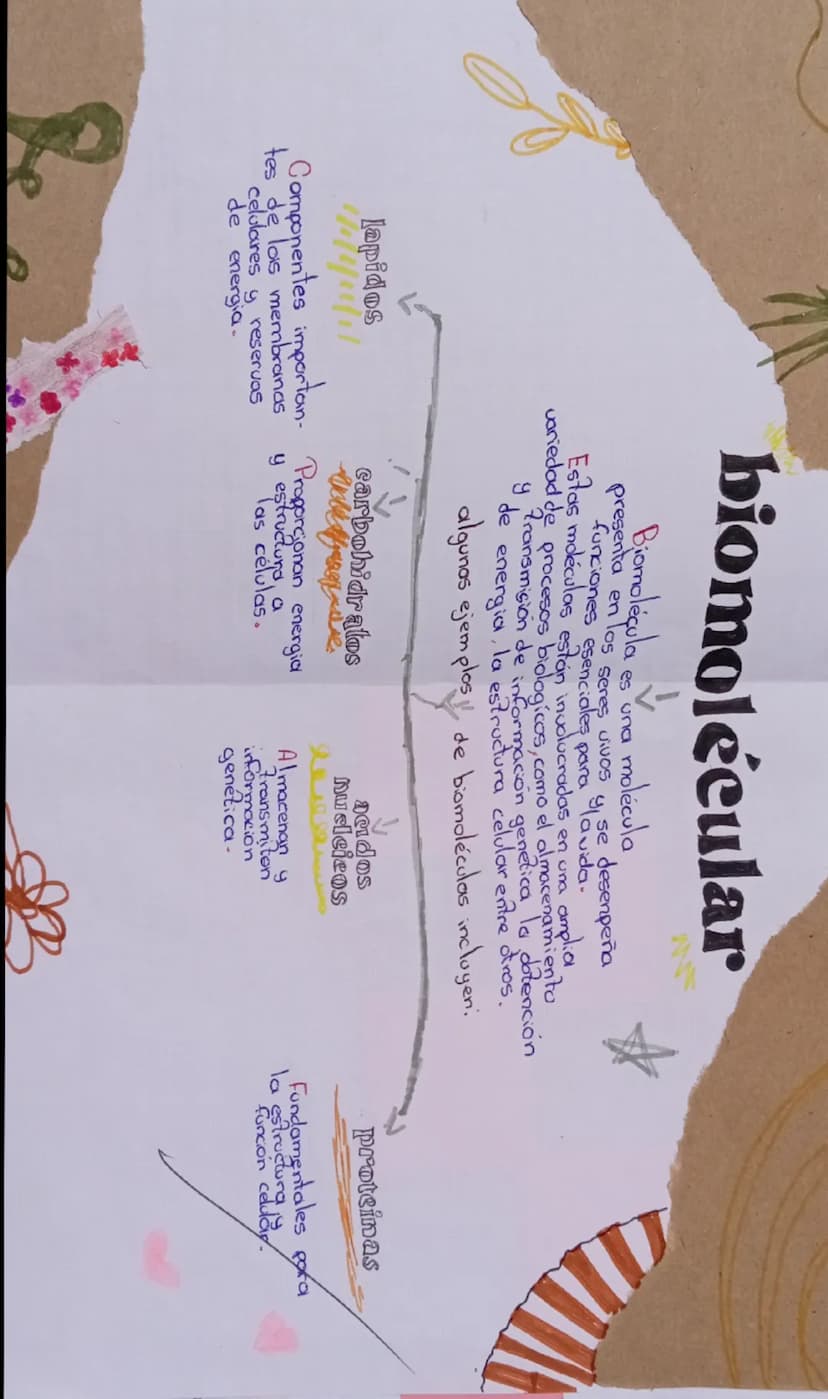 biomolécular
Biomolécula es una molécula
presenta en los seres vivos y se desenpeña
funciones esenciales para la vida.
Estas moléculas están involucradas en una amplia
variedad de procesos biologícos, como el almacenamiento
y transmisión de información genetica, la dotención
de energia, la estructura celular entre otros.
algunos ejemplos de biomoléculas incluyen:
lapidos
Componentes importan-
tes de las membranas
celulares y reservas
de energia.
carbohidratos
Proporcionan energia
y estructura a
las células.
acidos
nucleicos
Almacenan y
transmiten
información
genetica.
proteinas
Fundamentales para
la estructura y
función celular.